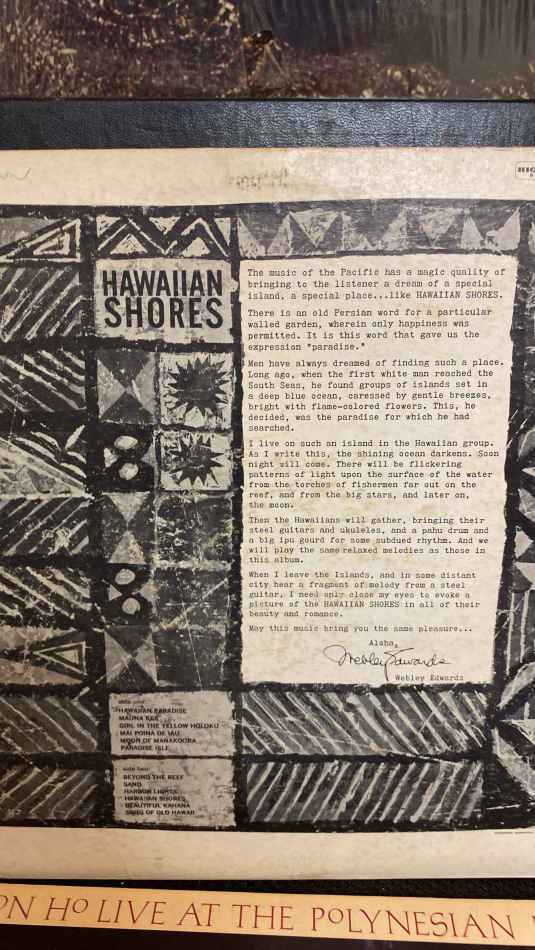 HAWAIIAN
SHORES
The music of the Pacific has a magic quality of
bringing to the listener a dream of a special
island, a special place...like HAWAIIAN SHORES.
There is an old Persian word for a particular
walled garden, wherein only happiness was
permitted. It is this word that gave us the
expression "paradise."
Men have always dreamed of finding such a place.
Long ago, when the first white man reached the
South Seas, he found groups of islands set in
a deep blue ocean, caressed by gentle breezes,
bright with flame-colored flowers. This, he
decided, was the paradise for which he had
searched.
I live on such an island in the Hawaiian group.
As I write this, the shining ocean darkens. Soon
night will come. There will be flickering
patterns of light upon the surface of the water
from the torches of fishermen far out on the
reef, and from the big stars, and later on,
the moon.
Then the Hawaiians will gather, bringing their
steel guitars and ukuleles, and a pahu drum and
a big ipu gourd for some subdued rhythm. And we
will play the same relaxed melodies as those in
this album.
When I leave the Islands, and in some distant
city hear a fragment of melody from a steel
guitar, I need only close my eyes to evoke a
picture of the HAWAIIAN SHORES in all of their
beauty and romance.
May this music bring you the same pleasure...
Aloha,
Webley Edwards
Webley Edwards
side one
HAWAIIAN PARADISE
MAUNA KEA
GIRL IN THE YELLOW HOLOKU
MAI POINA OE IAU
MOON OF MANAKOORA
PARADISE ISLE
side two
BEYOND THE REEF
SAND
HARBOR LIGHTS
HAWAIIAN SHORES
BEAUTIFUL KAHANA
SONG OF OLD HAWAII
ON HO LIVE AT THE POLYNESIAN